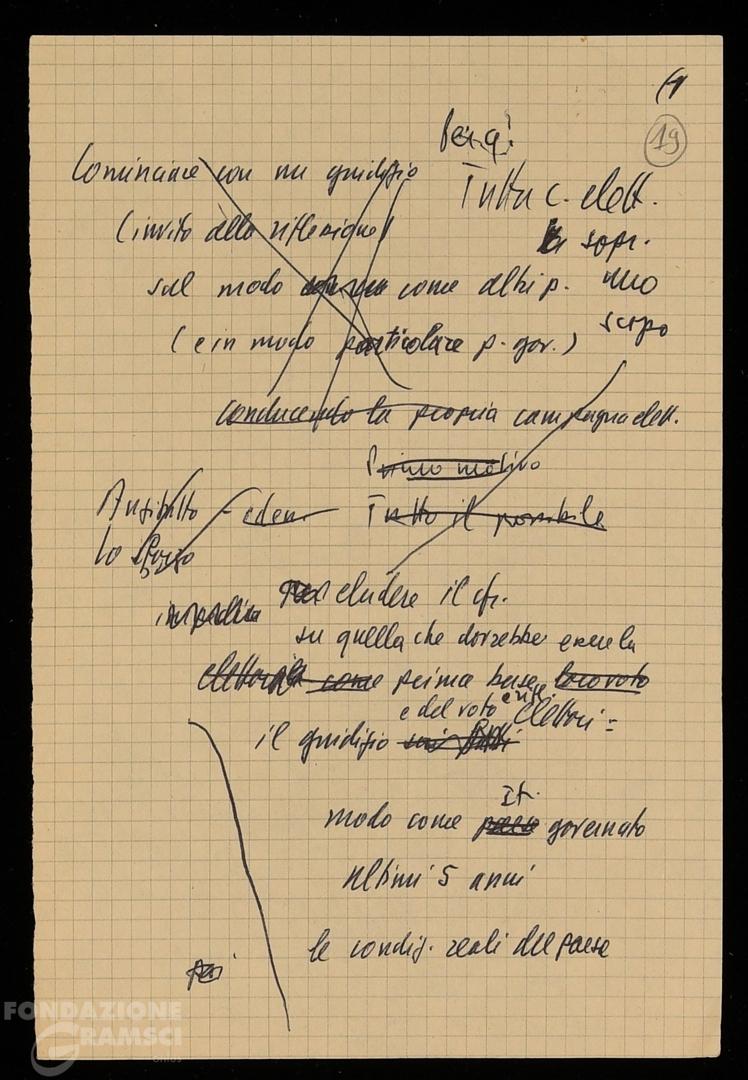 (1
19
Cominciare con un giudizio
Tutta c. elett.
(invito alla riflessione)
sopr.
sul modo come altri p.
uno
scopo
(e in modo particolare p. gov.)
conducendo la propria campagna elett.
Primo motivo
Anzitutto
Tutto il possibile
lo sforzo
impedire eludere il
su quella che dovrebbe essere la
elettorale come prima base loro voto
e del voto
elettori =
il giudizio sui fatti
It.
modo come paese governato
ultimi 5 anni
le condiz. reali del paese
per
FONDAZIONE
GRAMSCI